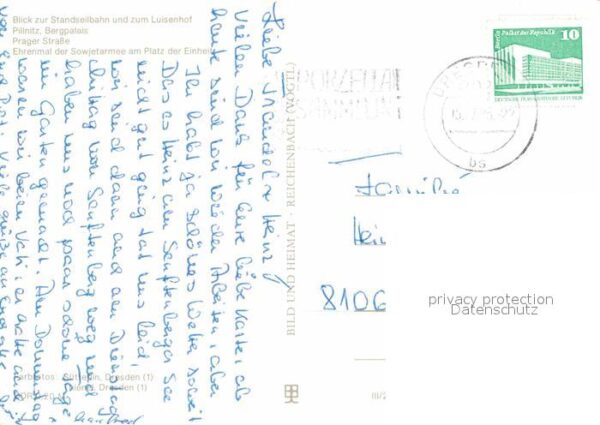 Blick zur Standseilbahn und zum Luisenhof
Pillnitz, Bergpalais
Prager Straße
Ehrenmal der Sowjetarmee am Platz der Einheit
Liebe Traudel + Heinz!
Vielen Dank für Eure liebe Karte, ab
heute sind wir wieder Arbeiten, aber
Ihr habt ja schönes Wetter soweit
Das es Heinz am Senftenberger See
nicht gut ging tat uns leid,
wir sind dann auch am Dienstag
Mittag von Senftenberg weg und
haben uns noch paar schöne Tage
im Garten gemacht. Am Donnerstag
waren wir beim Vati, er hatte
Viele Grüße an
Farbfotos
Dresden (1)
Dresden (1)
BILD UND HEIMAT · REICHENBACH (VOGTL)
PORZELLAN
SAMMLUNG
DRESDEN
bs
Berlin Palast der Republik
10
DEUTSCHE DEMOKRATISCHE REPUBLIK
Familie
8106
privacy protection
Datenschutz